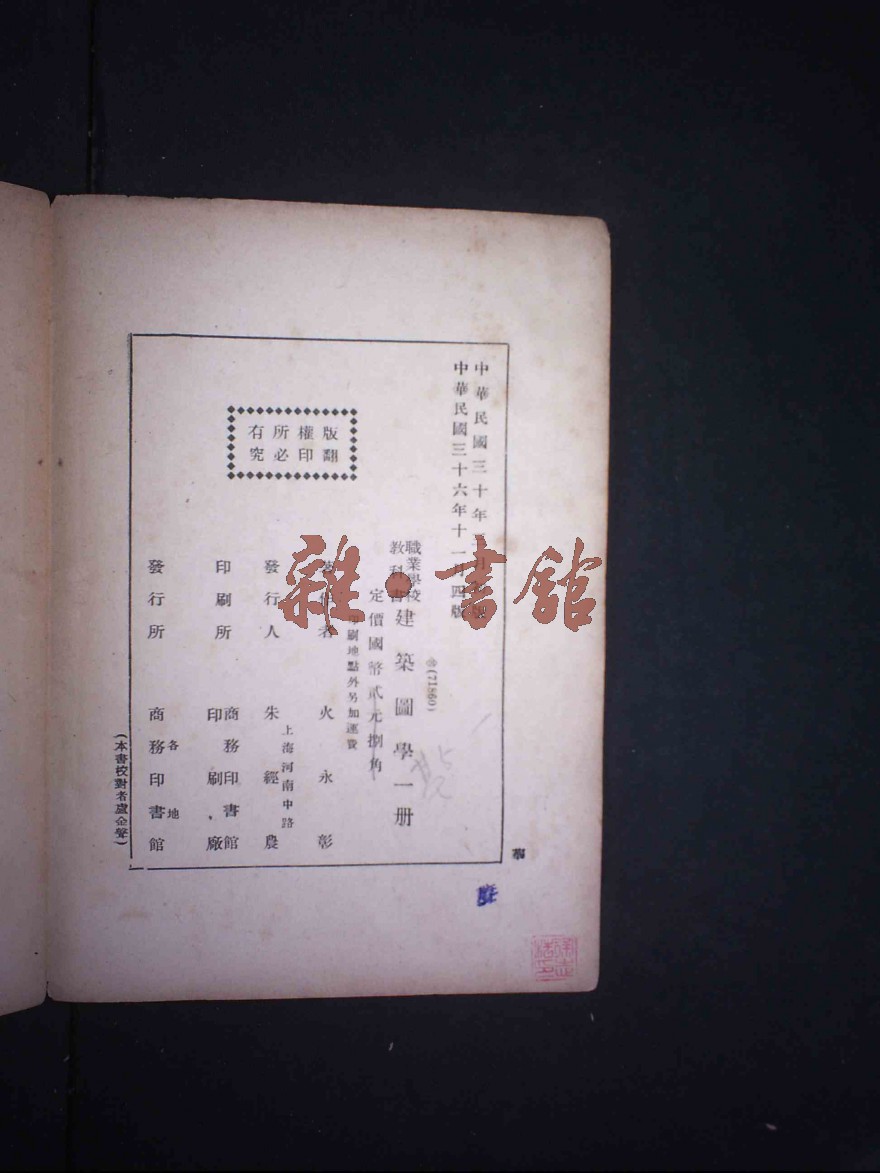 中華民國三十年
中華民國三十六年十一月四版
(71860)
職業學校
教科書
建築圖學一册
定價國幣貳元捌角
印刷地點外另加運費
著作者 火永彰
發行人 朱經農
上海河南中路
印刷所 商務印書館
印刷廠
發行所 各地
商務印書館
版權所有
翻印必究
(本書校對者盧金聲)
雜·書館